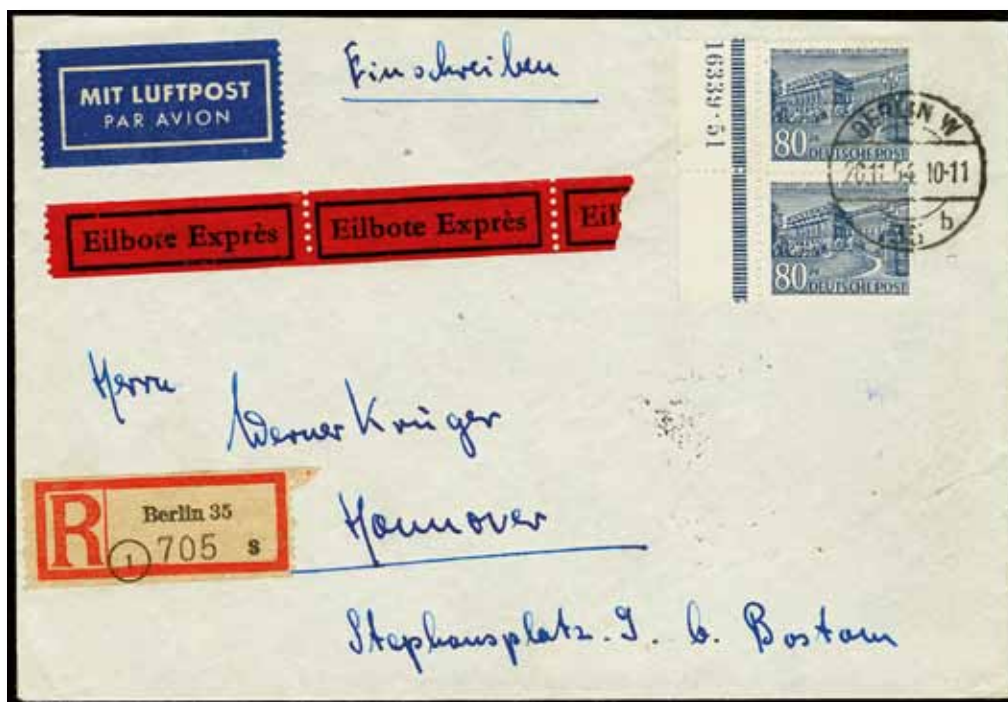 MIT LUFTPOST
PAR AVION
Einschreiben
16339·51
80 DEUTSCHE POST
80 DEUTSCHE POST
BERLIN W
11.54 10-11
b
Eilbote Exprès
Eilbote Exprès
Eil
Herrn
Werner Krüger
R
Berlin 35
705 s
1
Hannover
Stephansplatz b.